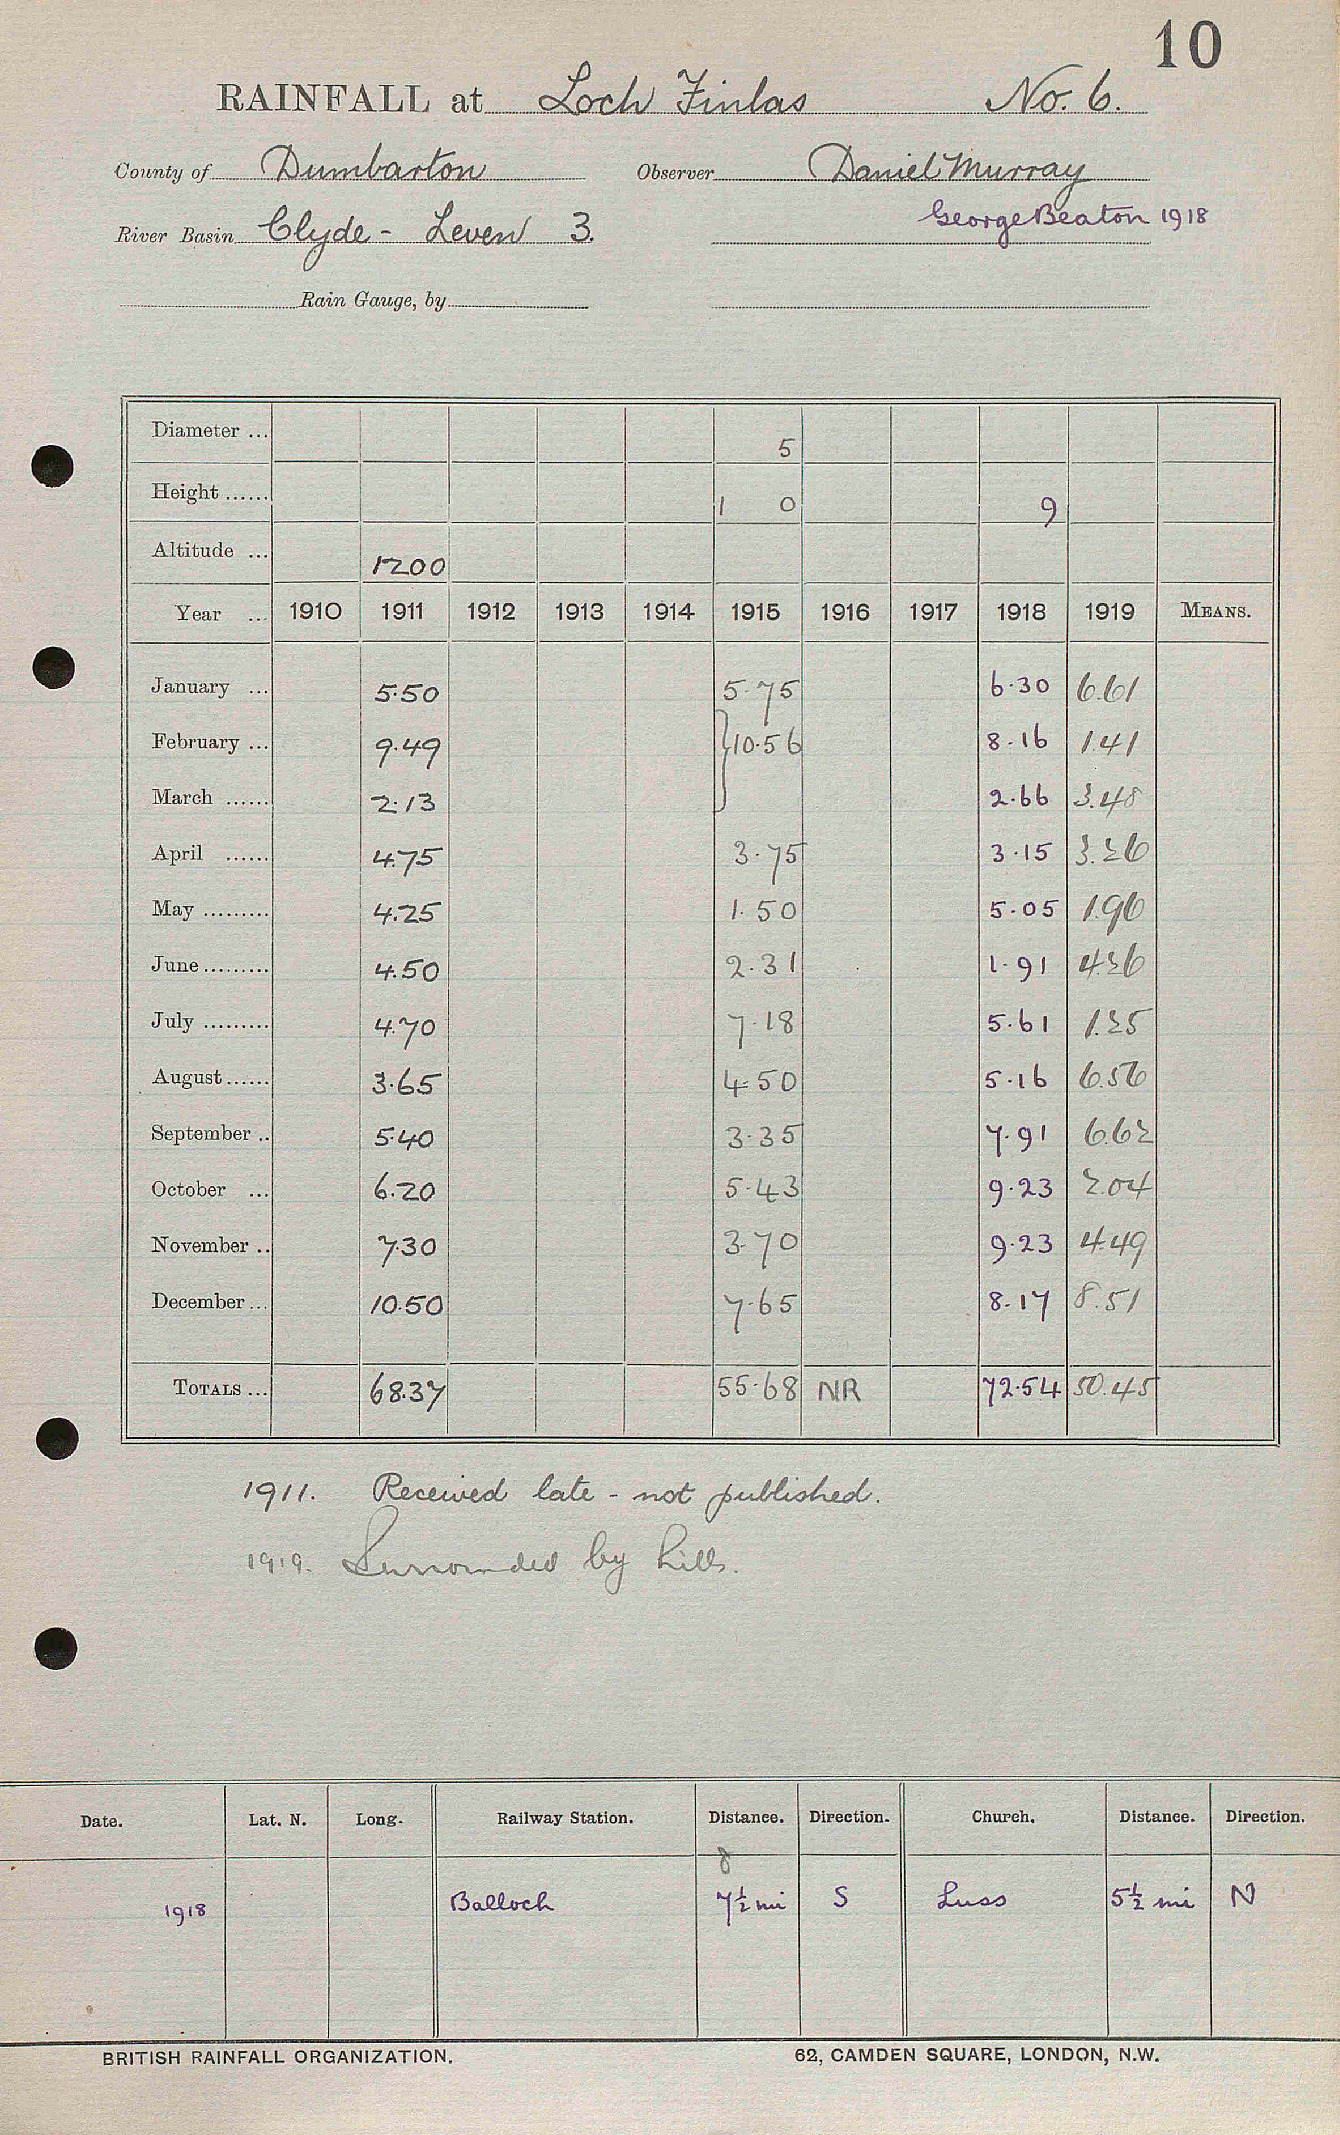 10
RAINFALL at Loch Finlas No. 6.
County of Dumbarton Observer Daniel Murray
George Beaton 1918
River Basin Clyde - Leven 3.
Rain Gauge, by
Diameter ... 5
Height ...... 1 0 9
Altitude ... 1200
Year ... 1910 1911 1912 1913 1914 1915 1916 1917 1918 1919 MEANS.
January ... 5.50 5.75 6.30 6.61
February ... 9.49 }10.56 8.16 1.41
March ...... 2.13 2.66 3.48
April ...... 4.75 3.75 3.15 3.26
May ......... 4.25 1.50 5.05 1.96
June ......... 4.50 2.31 1.91 4.26
July ......... 4.70 7.18 5.61 1.25
August ...... 3.65 4.50 5.16 6.56
September .. 5.40 3.35 7.91 6.62
October ... 6.20 5.43 9.23 2.04
November .. 7.30 3.70 9.23 4.49
December ... 10.50 7.65 8.17 8.51
TOTALS ... 68.37 55.68 NR 72.54 50.45
1911. Received late - not published.
1919. Surrounded by hills.
Date. Lat. N. Long. Railway Station. Distance. Direction. Church. Distance. Direction.
8
1918 Balloch 7½ mi S Luss 5½ mi N
BRITISH RAINFALL ORGANIZATION. 62, CAMDEN SQUARE, LONDON, N.W.